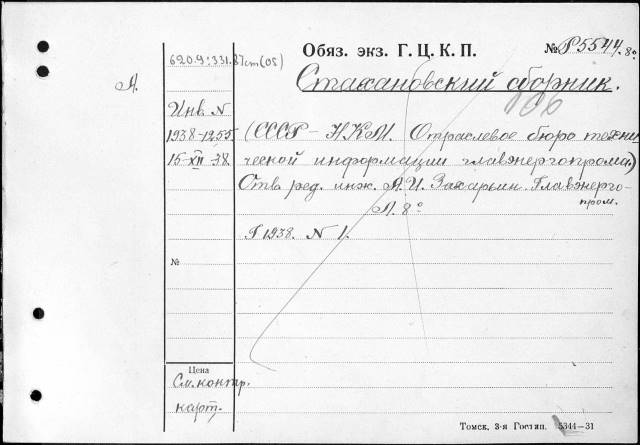 Обяз. экз. Г. Ц. К. П. № Р5544. 8°
620.9:331.87ст(05)
Л.
Стахановский сборник.
106
Инв N
1938-1255
15-XII-38.
(СССР - НКМ. Отраслевое бюро техни
ческой информации главэнергопрома.)
Отв. ред. инж. А.И. Захарьин. Главэнерго-
пром.
Л. 8°
Г 1938. N 1.
№
Цена
См. контр.
карт.
Томск, 3-я Гостип. 5344—31